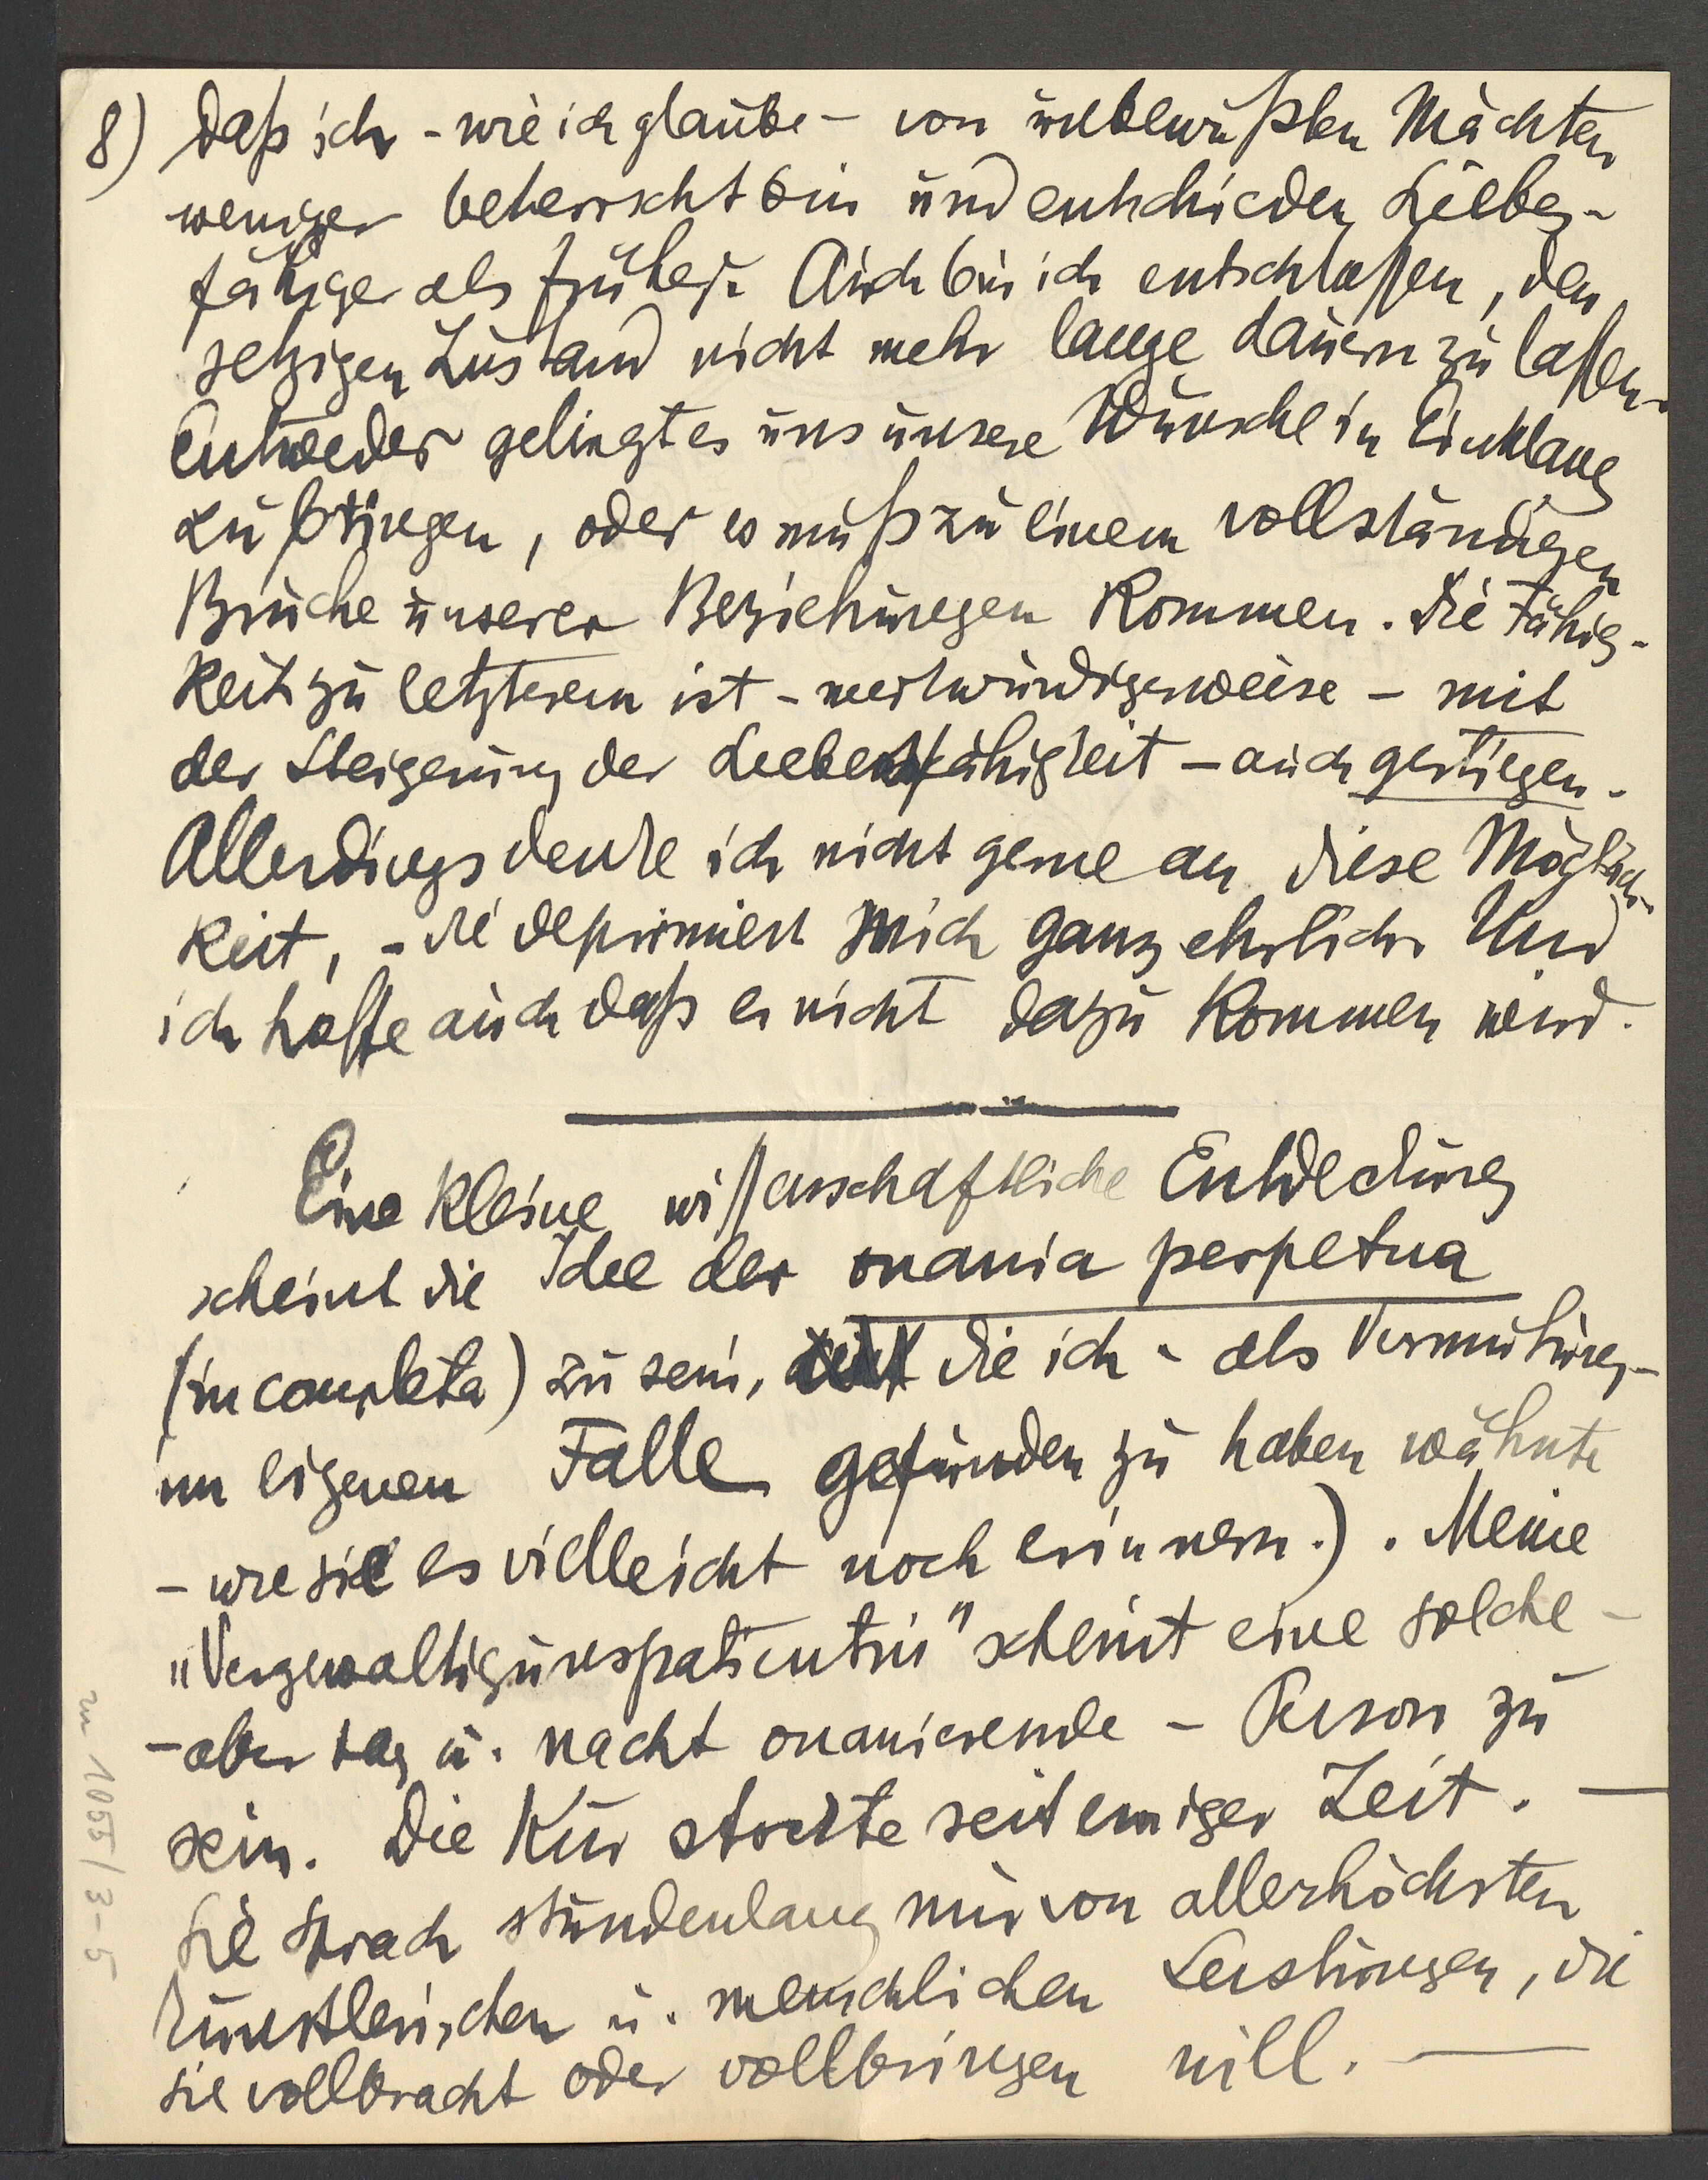 8) daß ich - wie ich glaube - von unbewußten Mächten
weniger beherrscht bin und entschieden Liebes-
fähiger als früher. Auch bin ich entschlossen, den
jetzigen Zustand nicht mehr lange dauern zu lassen.
Entweder gelingt es uns unsere Wünsche in Einklang
zu bringen, oder es muß zu einem vollständigen
Bruche unserer Beziehungen kommen. Die Fähig-
keit zu letzterem ist - merkwürdigerweise - mit
der Steigerung der Liebesfähigkeit - auch gestiegen.
Allerdings denke ich nicht gerne an diese Möglich-
keit, - die deprimiert mich ganz ehrlich. Und
ich hoffe auch daß es nicht dazu kommen wird.
Eine kleine wissenschaftliche Entdeckung
scheint die Idee der onania perpetua
(incompleta) zu sein, die ich - als Vermutung -
im eigenen Falle gefunden zu haben wähnte
- wie sie es vielleicht noch erinnern.). Meine
„Vergewaltigungspatientin" scheint eine solche -
- aber tag u. nacht onanierende - Person zu
sein. Die Kur stockte seit einiger Zeit. -
Sie sprach stundenlang nur von allerhöchsten
künstlerischen u. menschlichen Leistungen, die
sie vollbracht oder vollbringen will. -
zu 1055/3-5